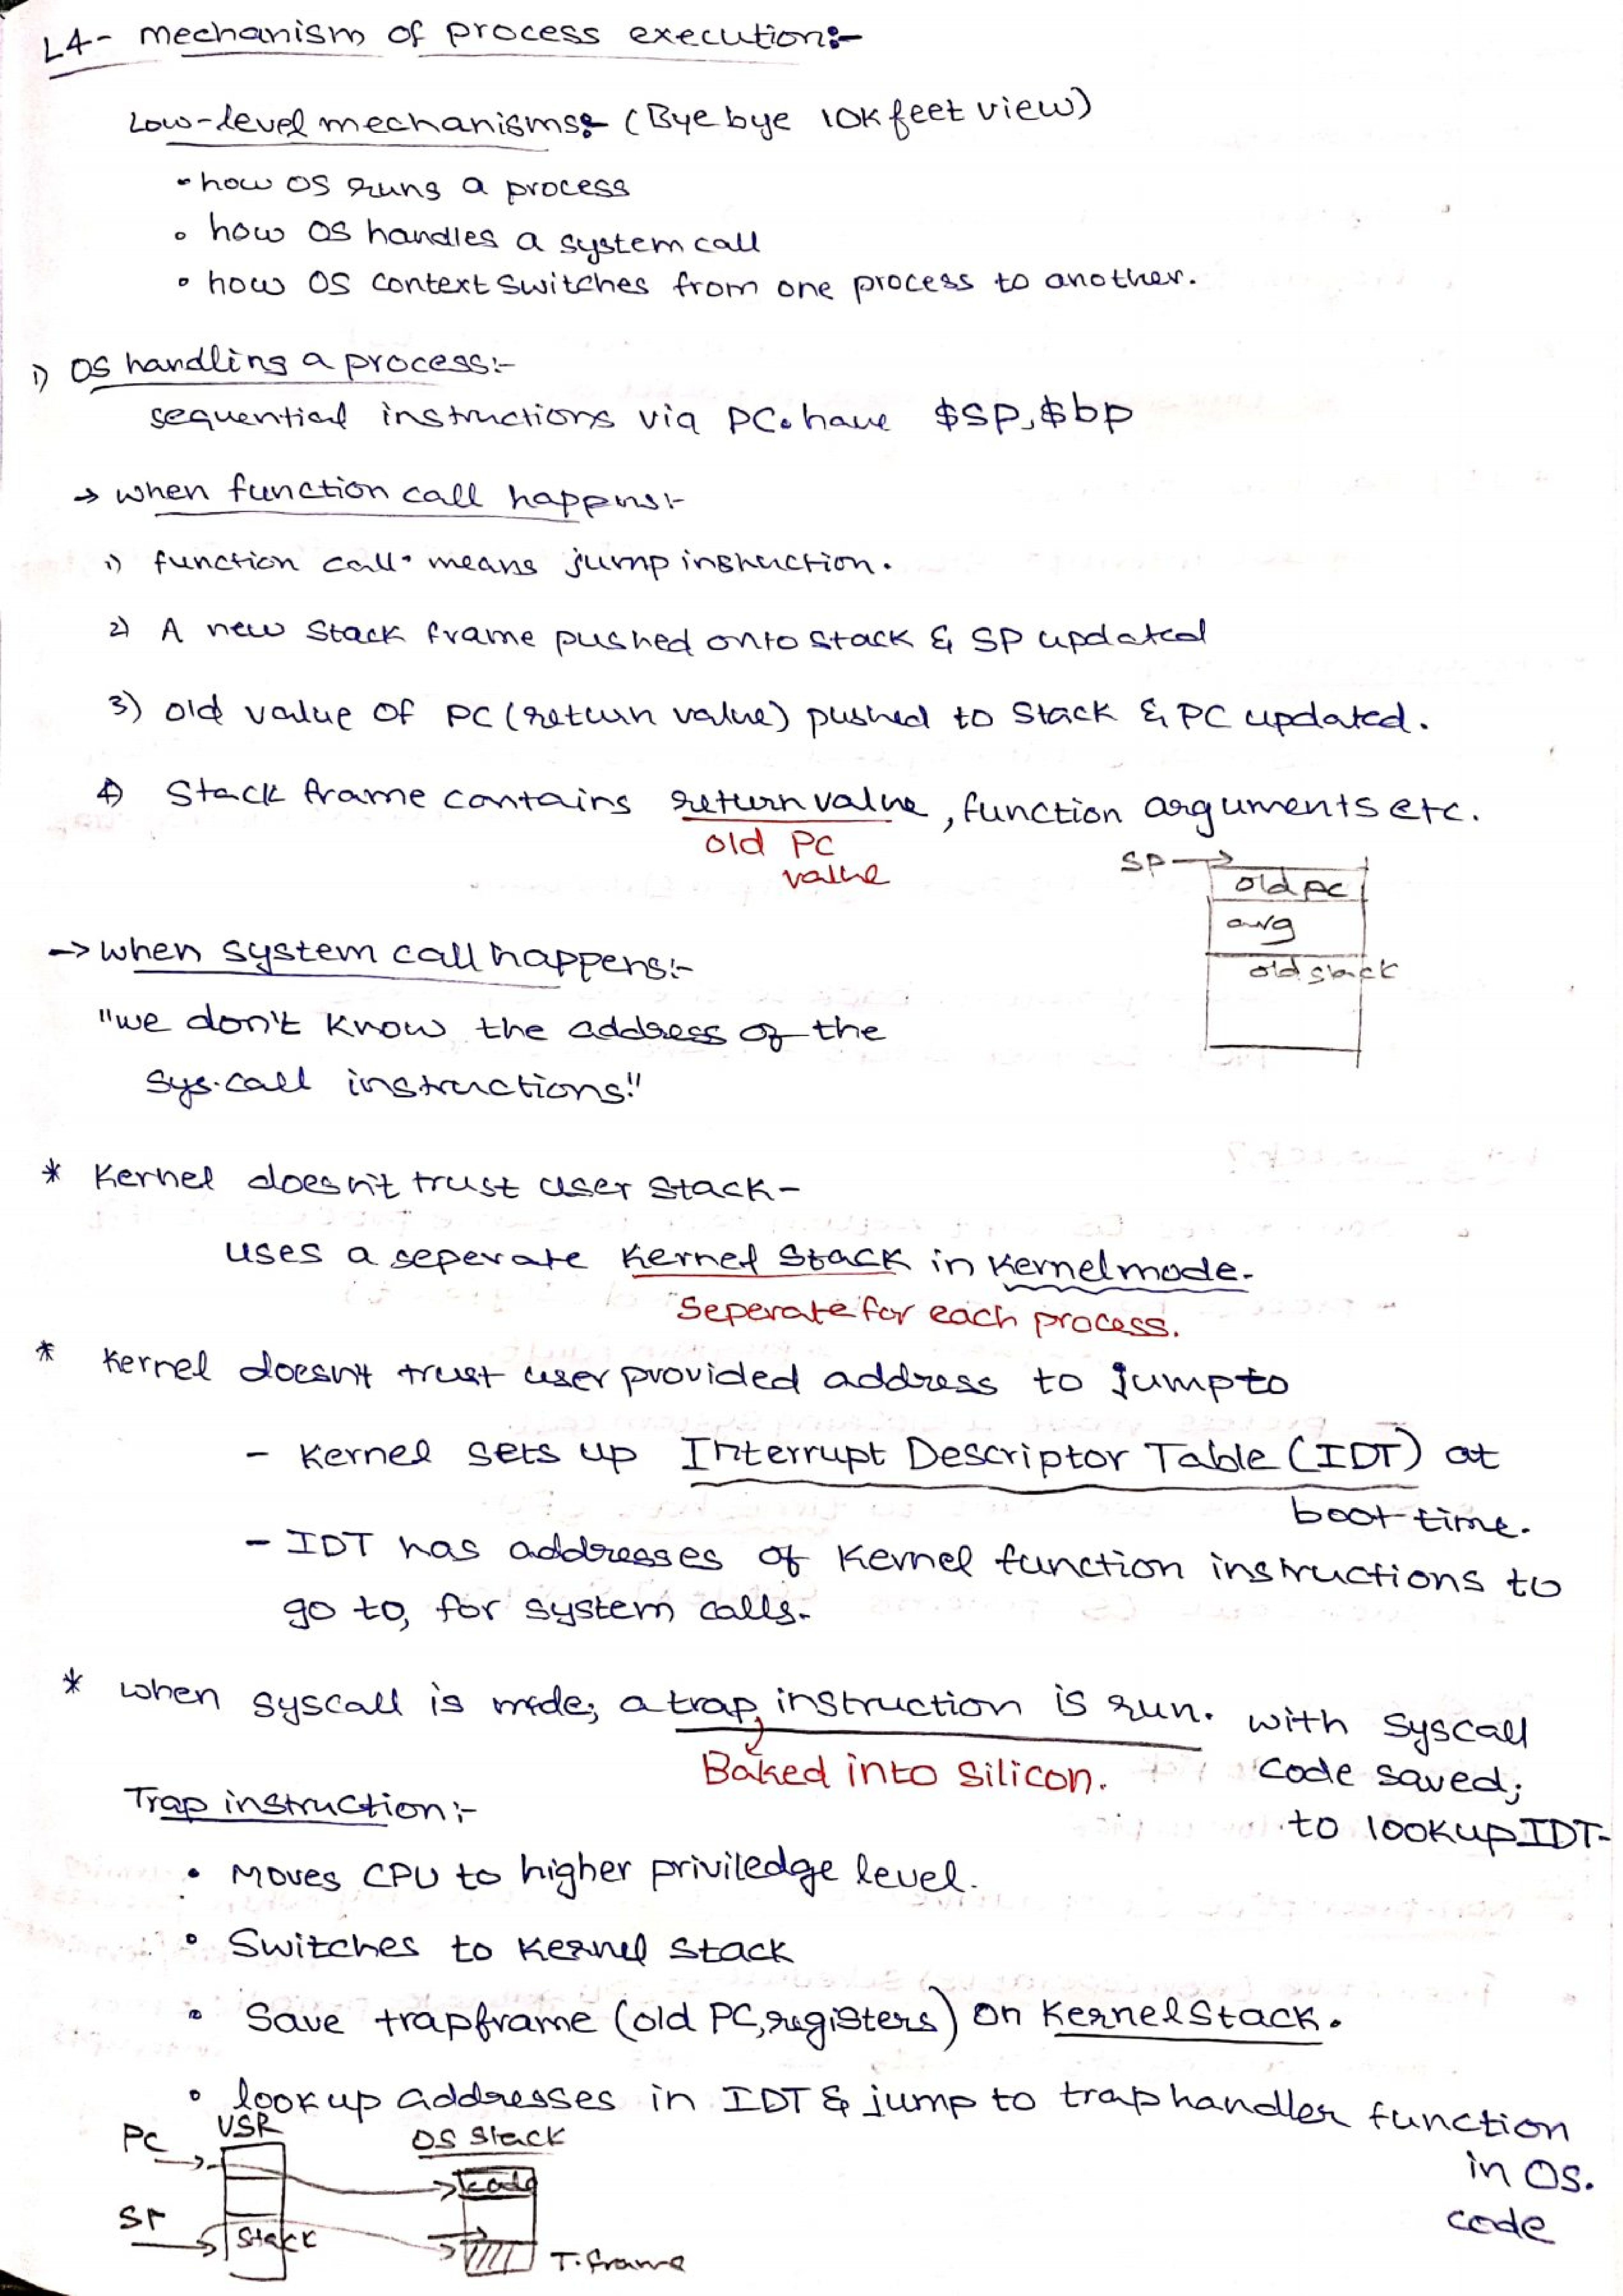 L4- mechanism of process execution:-
Low-level mechanisms:- (Bye bye 10K feet view)
• how OS runs a process
• how OS handles a system call
• how OS context switches from one process to another.
1) OS handling a process:-
sequential instructions via PC. have $sp, $bp
→ when function call happens:-
1) function call. means jump instruction.
2) A new stack frame pushed onto stack & SP updated
3) old value of PC (return value) pushed to stack & PC updated.
4) Stack frame contains return value, function arguments etc.
old PC
value
SP →
old pc
arg
old stack
→ when system call happens:-
"we don't know the address of the
sys.call instructions!"
* Kernel doesn't trust user stack -
uses a seperate kernel stack in kernel mode.
"Seperate" for each process.
* Kernel doesn't trust user provided address to jump to
- Kernel sets up Interrupt Descriptor Table (IDT) at
boot time.
- IDT has addresses of kernel function instructions to
go to, for system calls.
* when syscall is made; a trap instruction is run. with syscall
code saved;
to lookup IDT.
Baked into Silicon.
Trap instruction:-
• Moves CPU to higher priviledge level.
• Switches to kernel stack
• Save trapframe (old PC, registers) on kernel stack.
• lookup addresses in IDT & jump to trap handler function
in OS.
code
PC
USR
OS Stack
code
SP
Stack
T. frame